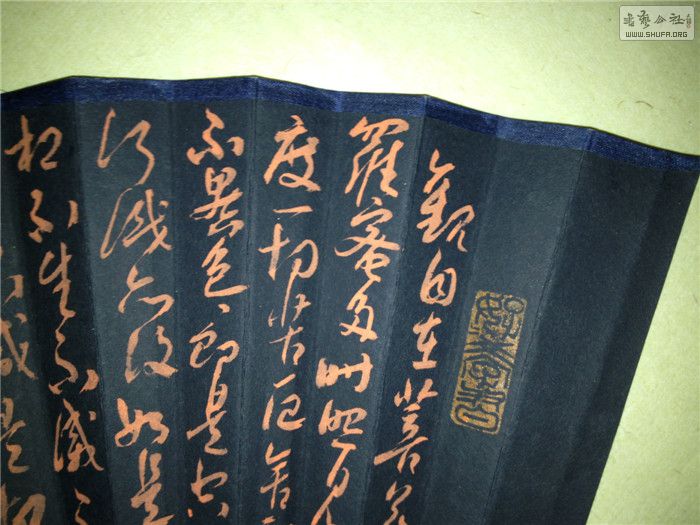 觀自在菩薩
羅蜜多時照見
度一切苦厄舍
不異色、即是空
行識亦復如是
相不生不滅不
減是
書藝公社
WWW.SHUFA.ORG